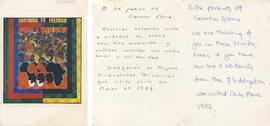 FORWARD TO FREEDOM
A los padres de
Carmen Gloria
Nosotras estamos junto
a ustedes en estos
terribles momentos y
ustedes cuentan con nuestro
amor y solidaridad
Delegacion de Mujeres
Sindicalistas Britanicas
que visitó chile en
Marzo de 1986.
To the parents of
Carmen Gloria
We are thinking of
you in these terrible
times + you have
our love + solidarity
from the TJ's delegation
who visited Chile March
1986